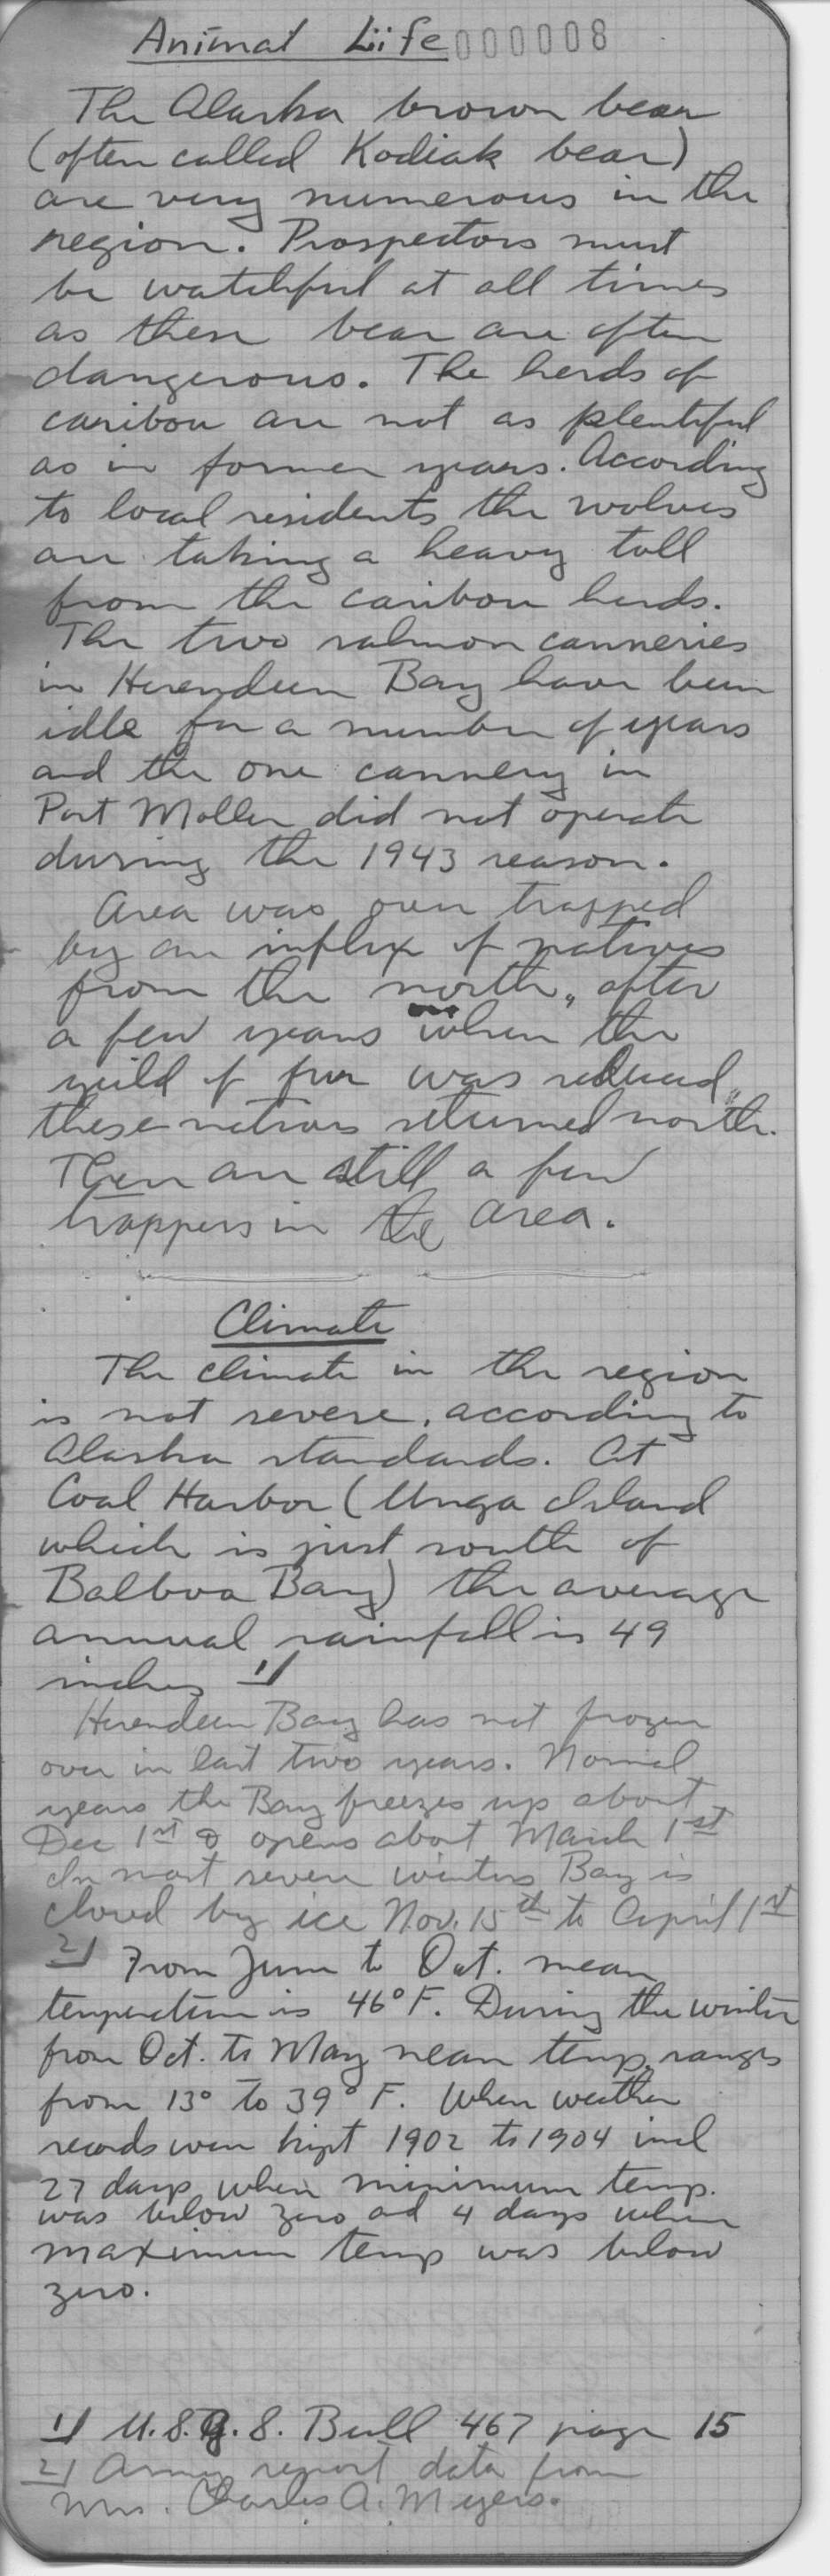 Animal Life 000008
The Alaska brown bear
(often called Kodiak bear)
are very numerous in the
region. Prospectors must
be watchful at all times
as these bear are often
dangerous. The herds of
caribou are not as plentiful
as in former years. According
to local residents the wolves
are taking a heavy toll
from the caribou herds.
The two salmon canneries
in Herendeen Bay have been
idle for a number of years
and the one cannery in
Port Moller did not operate
during the 1943 season.
Area was over trapped
by an influx of natives
from the north, after
a few years when the
yeild of fur was reduced,
these natives returned north.
There are still a few
trappers in the area.
Climate
The climate in the region
is not severe, according to
Alaska standards. At
Coal Harbor (Unga Island
which is just south of
Balboa Bay) the average
annual rainfall is 49
inches 1/
Herendeen Bay has not frozen
over in last two years. Normal
years the Bay freezes up about
Dec 1st & opens about March 1st
In most severe winters Bay is
closed by ice Nov. 15th to April 1st
2/ From June to Oct. mean
temperature is 46° F. During the winter
from Oct. to May mean temp. ranges
from 13° to 39° F. When weather
records were kept 1902 to 1904 incl
27 days when minimum temp.
was below zero and 4 days when
maximum temp was below
zero.
1/ U.S.G.S. Bull 467 page 15
2/ Army report data from
Mrs. Charles A. Meyers.